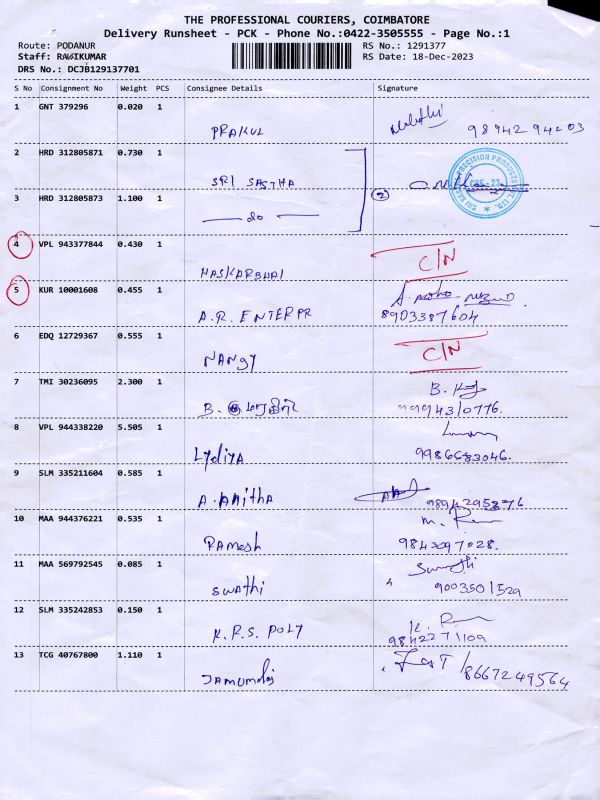 THE PROFESSIONAL COURIERS, COIMBATORE
Delivery Runsheet - PCK - Phone No.:0422-3505555 - Page No.:1
Route: PODANUR RS No.: 1291377
Staff: RAVIKUMAR RS Date: 18-Dec-2023
DRS No.: DCJB129137701
S No Consignment No Weight PCS Consignee Details Signature
1 GNT 379296 0.020 1
PRAKUL 98942 94203
2 HRD 312805871 0.730 1
SRI SASTHA
3 HRD 312805873 1.100 1 2
do
4 VPL 943377844 0.430 1
HASKARBHAI C/N
5 KUR 10001608 0.455 1
A.R. ENTERPR 8903387604
6 EDQ 12729367 0.555 1
NANGY C/N
7 TMI 30236095 2.300 1
B. 9994310776.
8 VPL 944338220 5.505 1
Lydiya 9986683046.
9 SLM 335211604 0.585 1
A. Anitha 9894295876
10 MAA 944376221 0.535 1
Ramesh 9842097028.
11 MAA 569792545 0.085 1
Swathi 9003501529
12 SLM 335242853 0.150 1
K.R.S. POLY 9842271109
13 TCG 40767800 1.110 1
8667249564